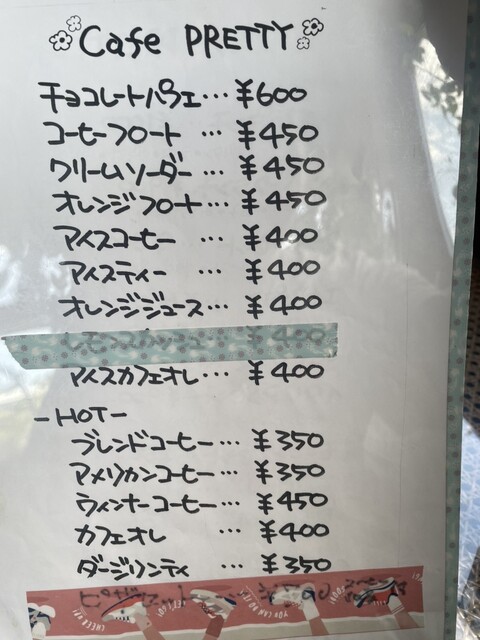 Cafe PRETTY
チョコレートパフェ…¥600
コーヒーフロート …¥450
クリームソーダー…¥450
オレンジフロート…¥450
アイスコーヒー …¥400
アイスティー …¥400
オレンジジュース…¥400
¥400
アイスカフェオレ…¥400
-HOT-
ブレンドコーヒー…¥350
アメリカンコーヒー…¥350
ウィンナーコーヒー…¥450
カフェオレ …¥400
ダージリンティ …¥350
CHEER UP! LET'S GO! YOU CAN DO IT!